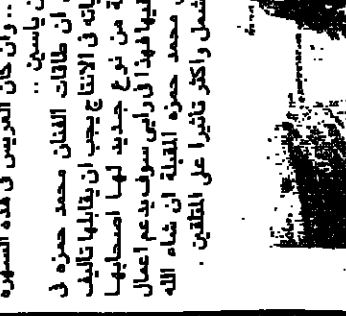 .. وان كان العريس فى هذه السهره
ن ياسين ..
ان طاقات الفنان محمد حمزه فى
ياته فى الانتاج يجب ان يقابلها تاليف
ة من نوع جديد لها اصحابها
فهذا فى رايى سوف يدعم اعمال
محمد حمزه المقبلة ان شاء الله
شمل واكثر تأثيرا على المتلقين .